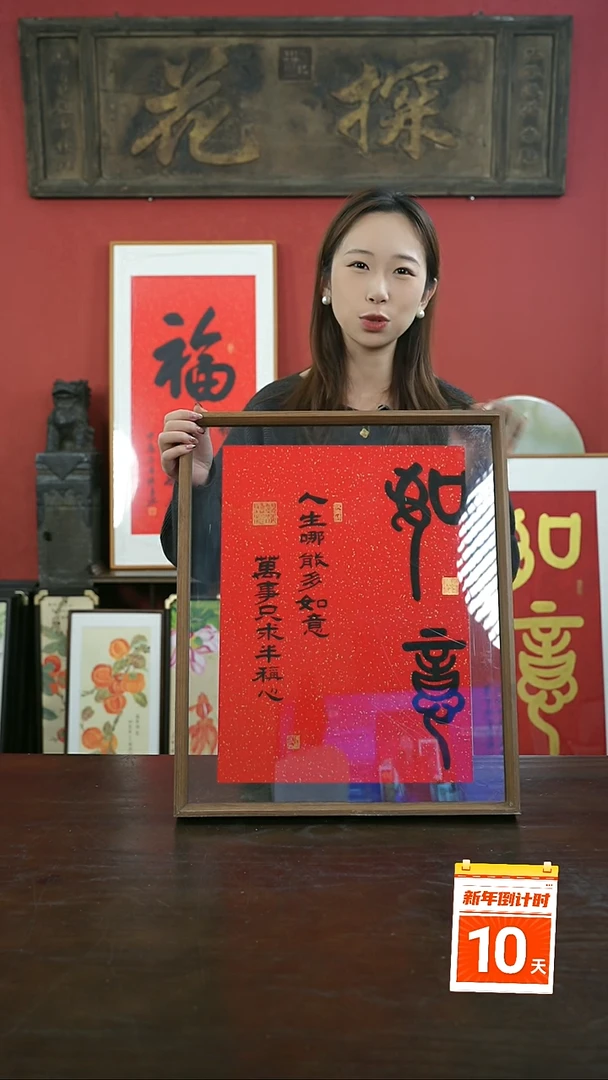 探花
福
如意
人生哪能多如意
萬事只求半稱心
如意
新年倒计时
10天